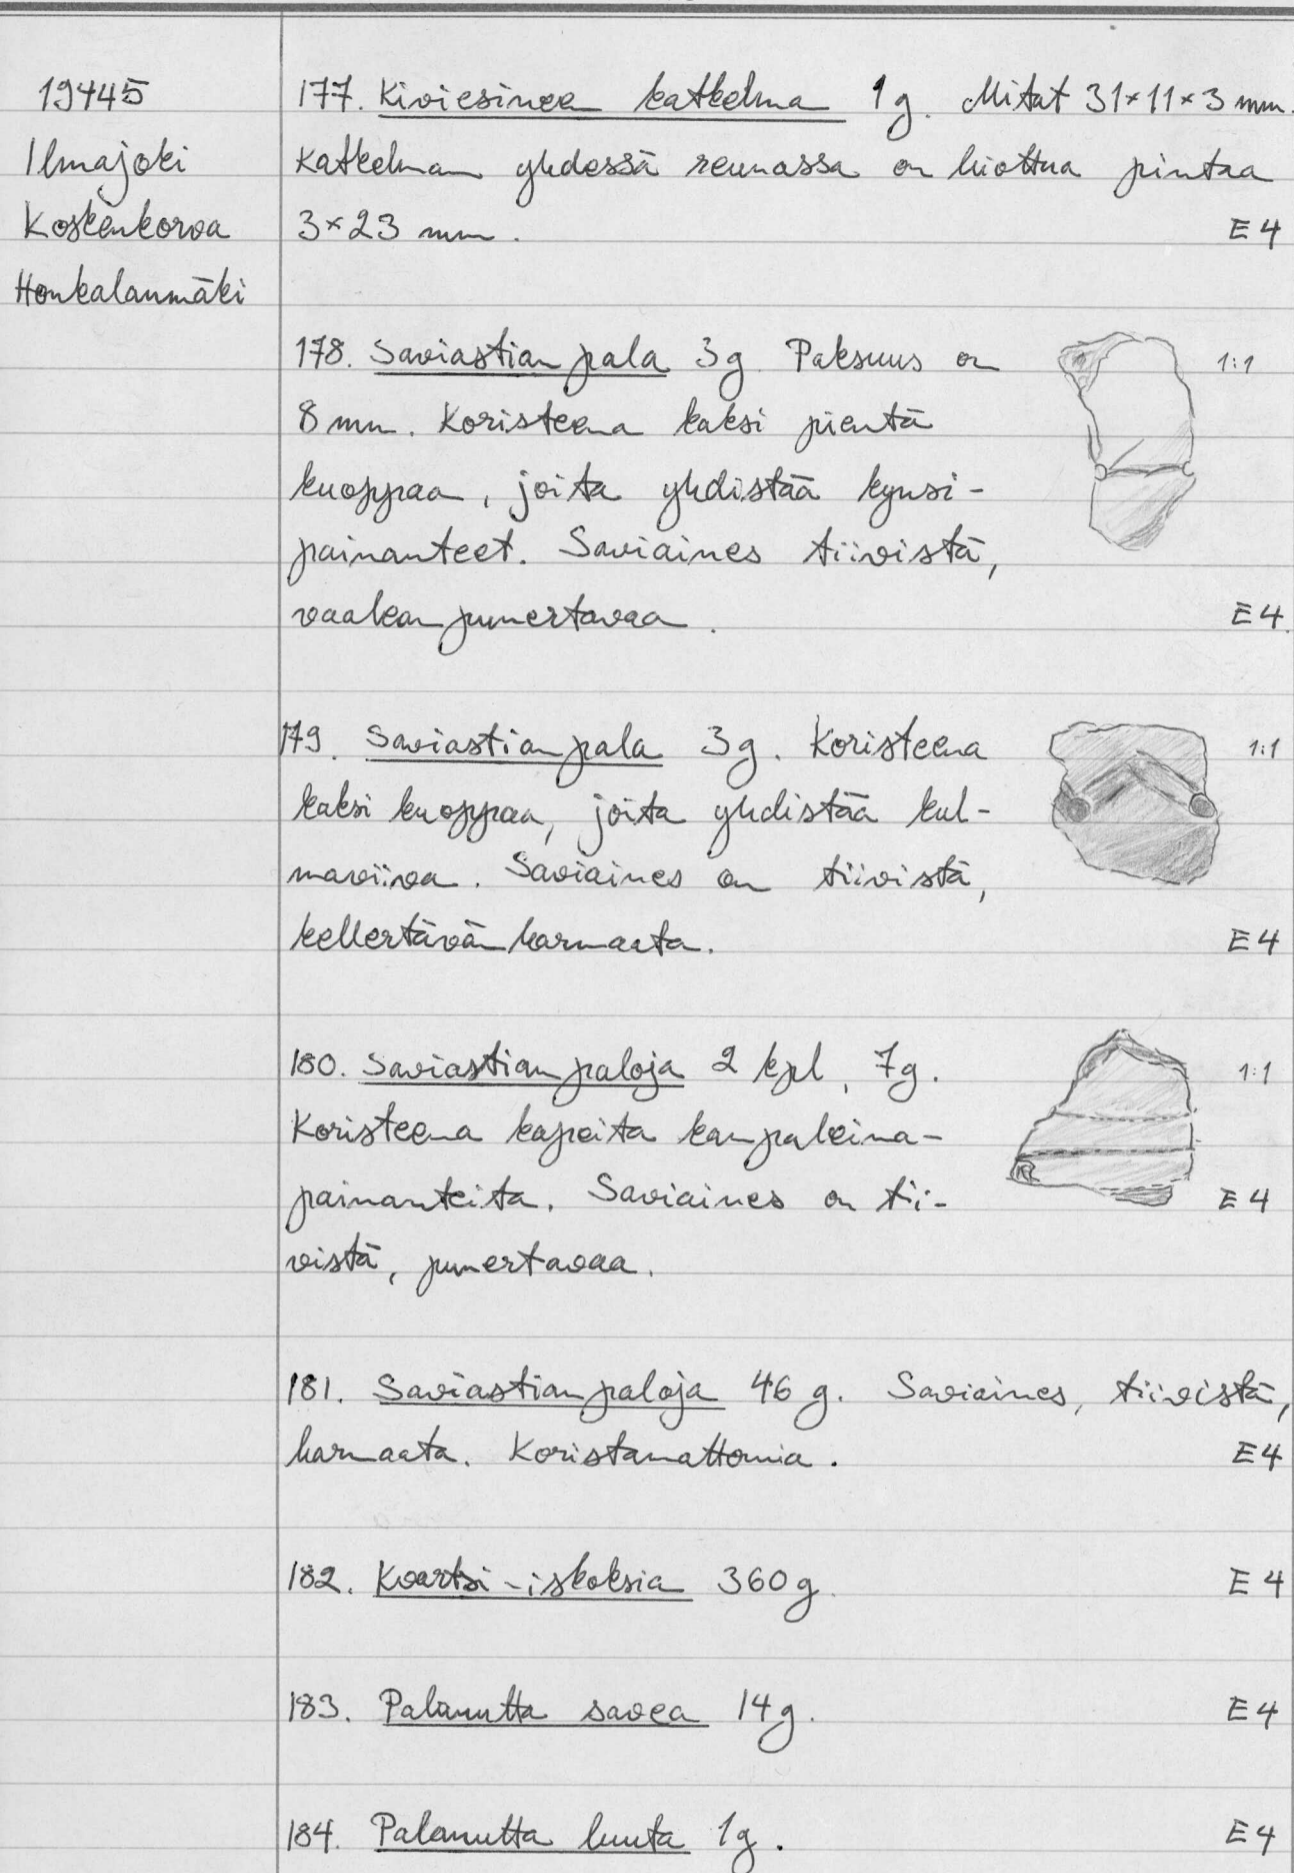 19445
Ilmajoki
Koskenkorva
Honkalanmäki
177. Kiviesineen katkelma 1 g. Mitat 31×11×3 mm.
Katkelman yhdessä reunassa on hiottua pintaa
3×23 mm. E 4
178. Saviastian pala 3 g. Paksuus on 1:1
8 mm. Koristeena kaksi pientä
kuoppaa, joita yhdistää kynsi-
painanteet. Saviaines tiivistä,
vaalean punertavaa. E 4.
179. Saviastian pala 3 g. Koristeena 1:1
kaksi kuoppaa, joita yhdistää kul-
maviiva. Saviaines on tiivistä,
kellertävän harmaata. E 4
180. Saviastian paloja 2 kpl, 7 g. 1:1
Koristeena kapeita kampaleima-
painanteita. Saviaines on tii- E 4
vistä, punertavaa.
181. Saviastian paloja 46 g. Saviaines, tiivistä,
harmaata. Koristamattomia. E 4
182. Kvartsi-iskoksia 360 g. E 4
183. Palanutta savea 14 g. E 4
184. Palanutta luuta 1 g. E 4